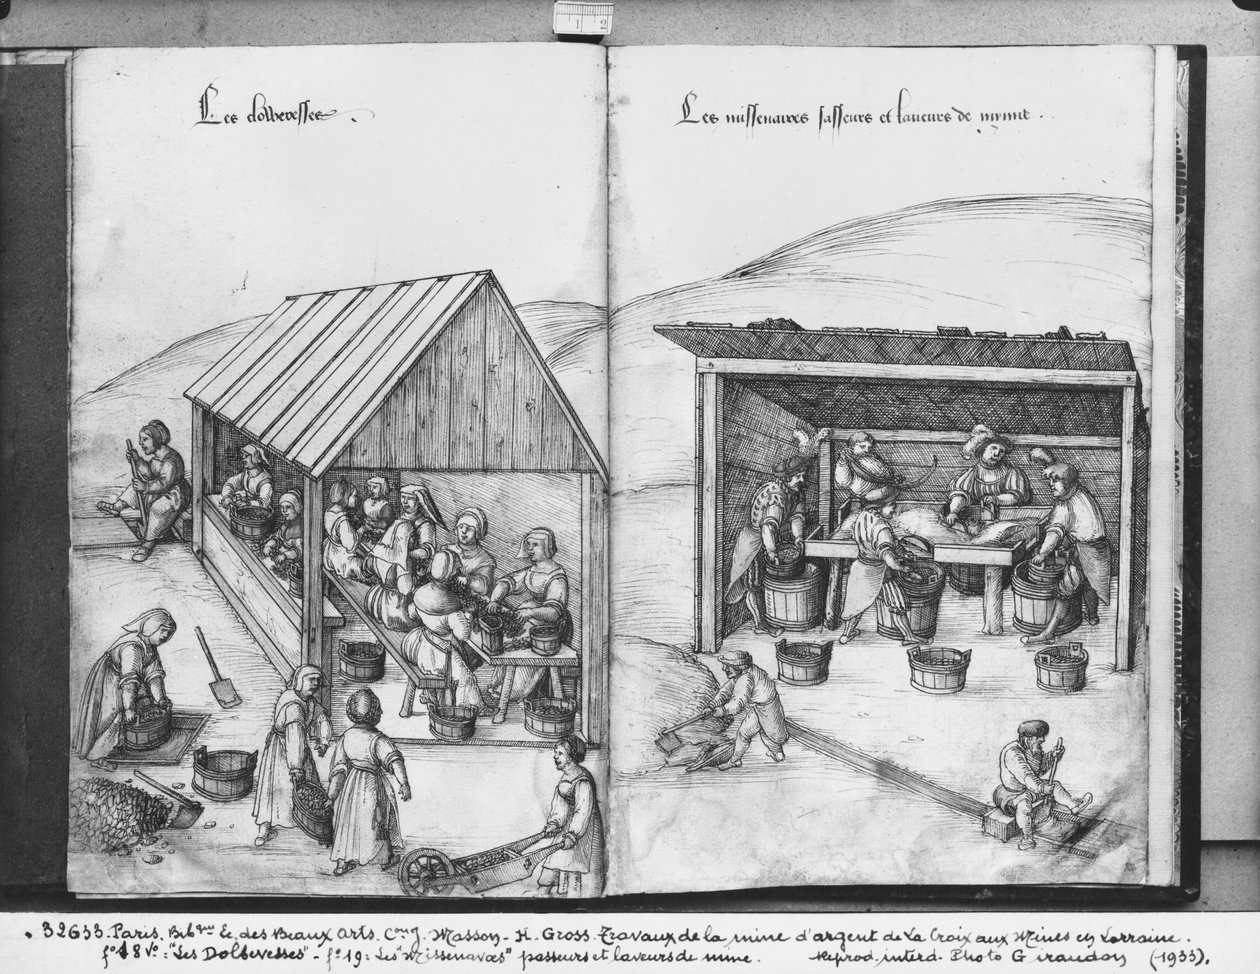 1 2
Les dolberesses
Les missenaires sasseurs et laueurs de mynne
32633. Paris. Bibque Ec. des Beaux Arts. Cong. Masson - H. Gross. Travaux de la mine d'argent de La Croix aux Mines en Lorraine.
fo 18 Vo: "Les Dolbevesses" - fo 19: Les "Missenaves" passeurs et laveurs de mine. Reprod. interd. Photo Giraudon (1933).